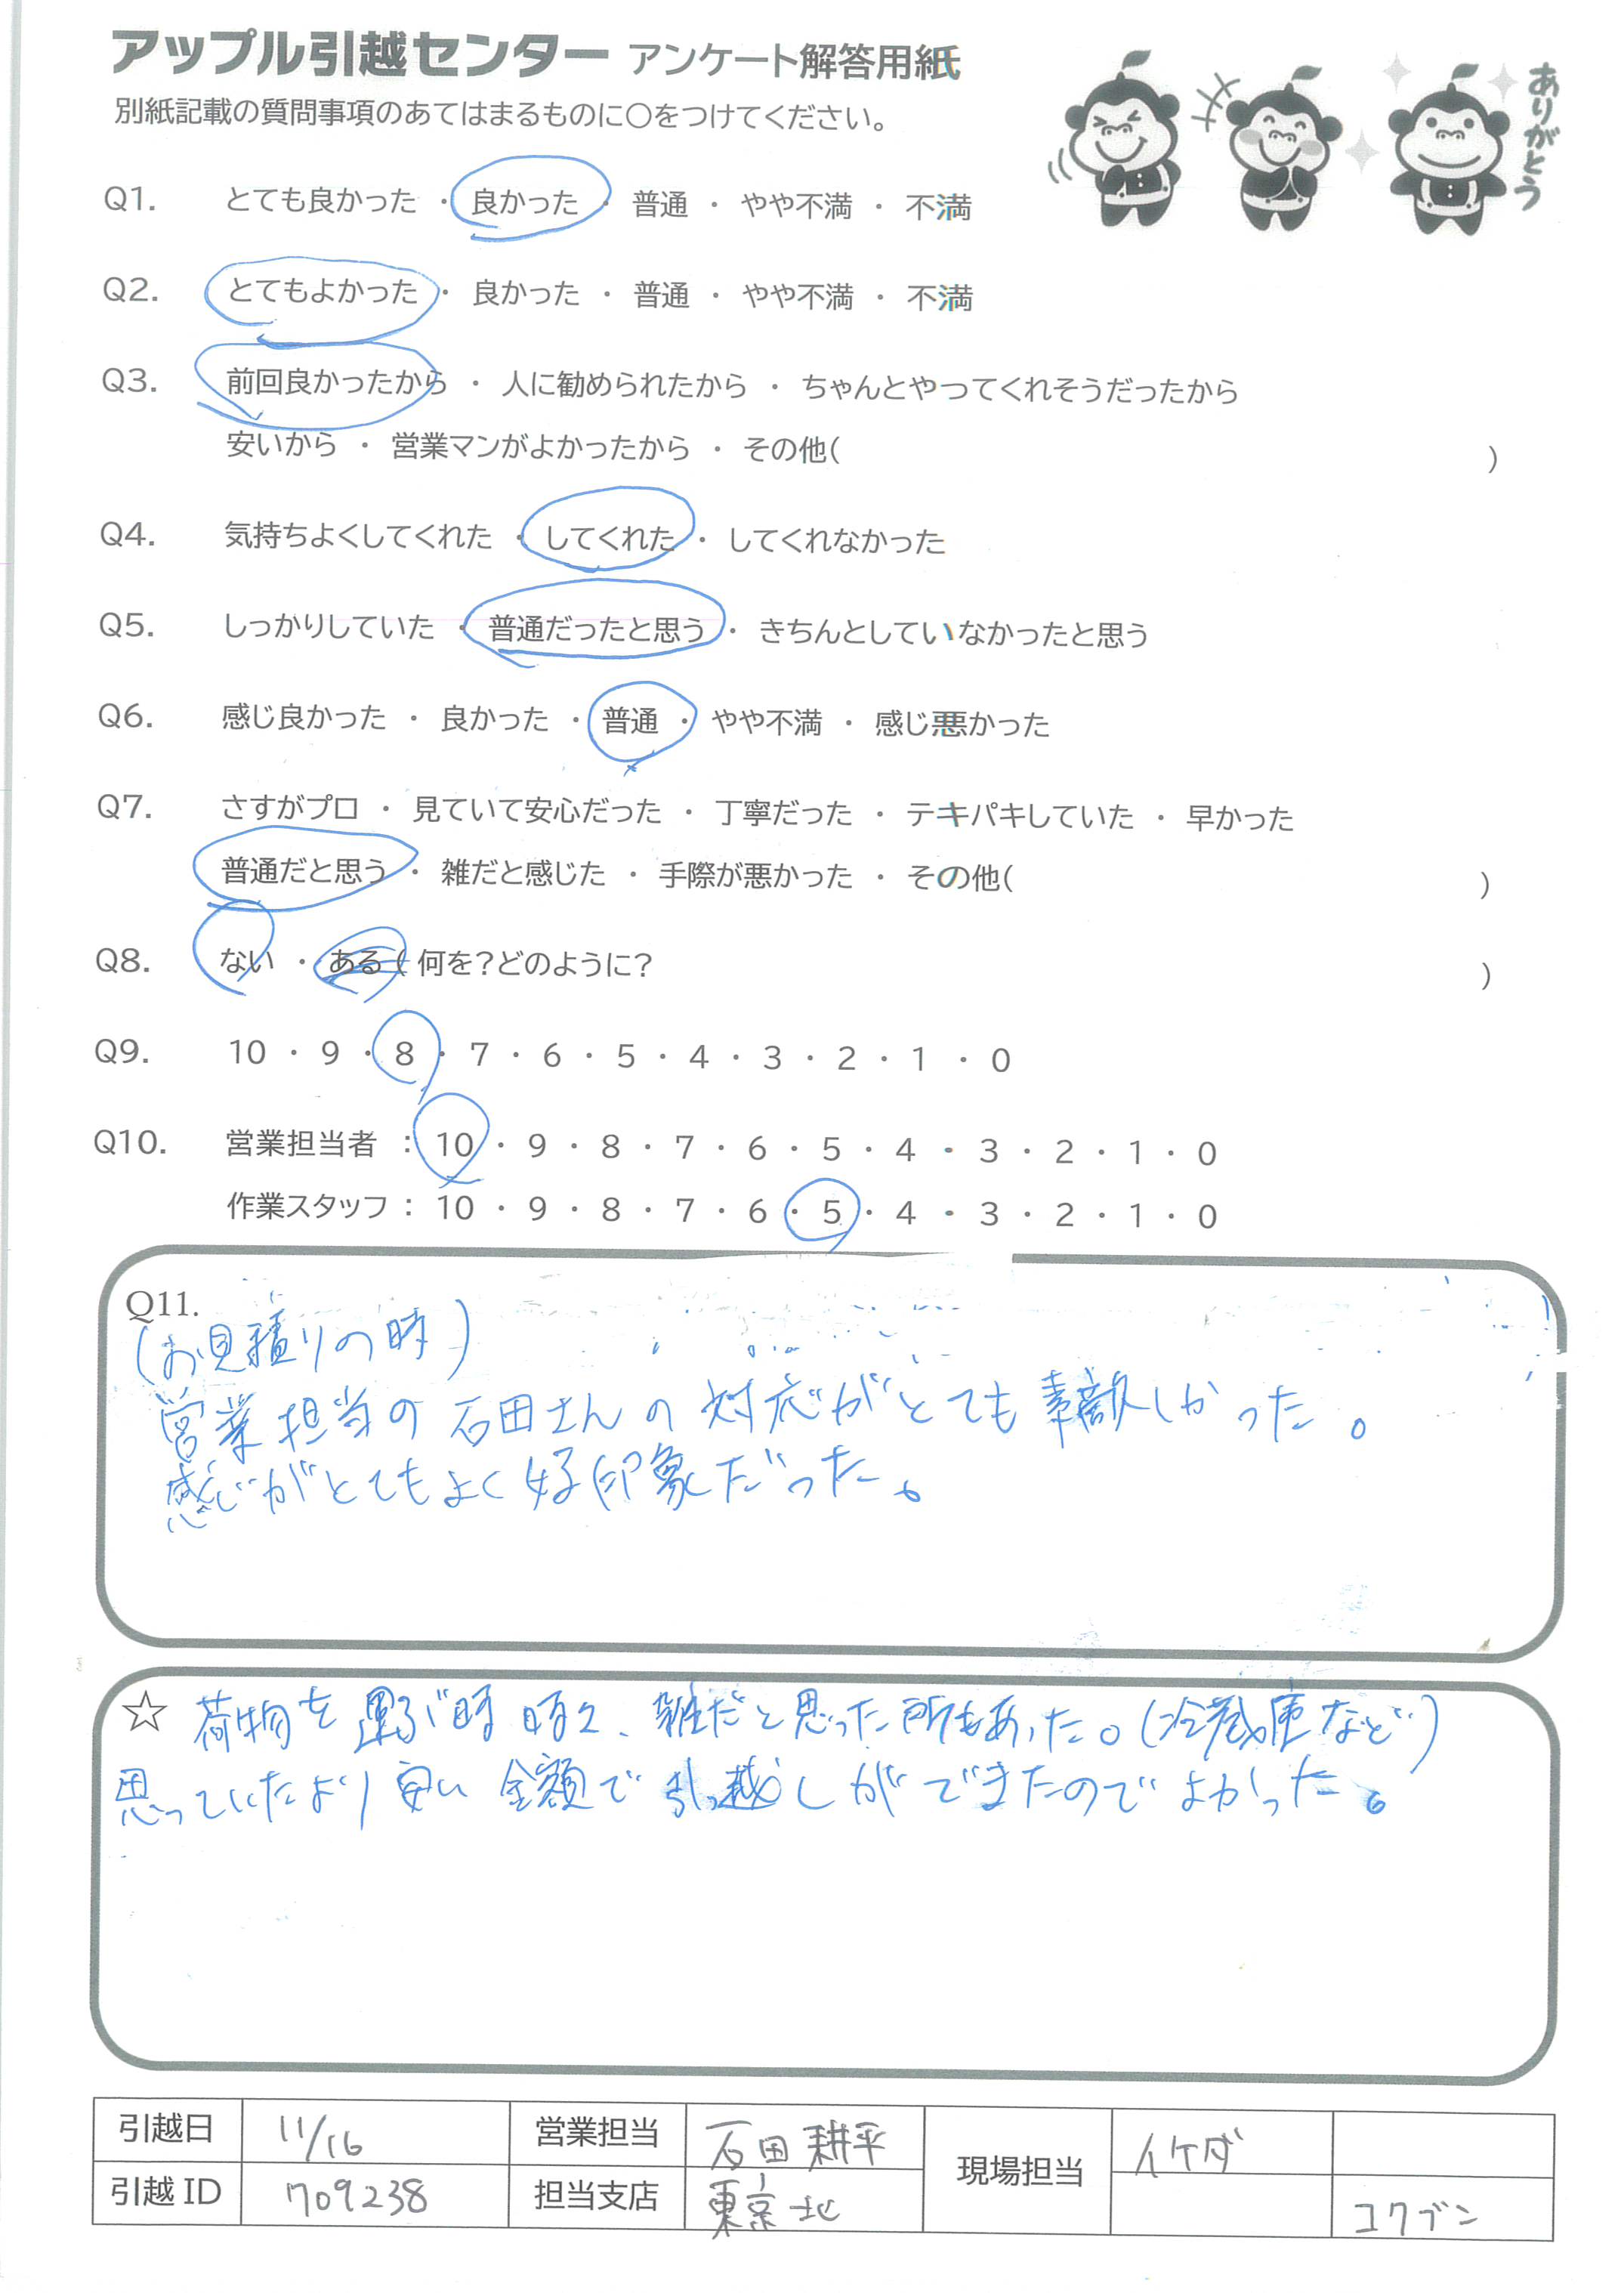 アップル引越センター アンケート解答用紙
別紙記載の質問事項のあてはまるものに○をつけてください。
ありがとう
Q1. とても良かった ・ 良かった ・ 普通 ・ やや不満 ・ 不満
Q2. とてもよかった ・ 良かった ・ 普通 ・ やや不満 ・ 不満
Q3. 前回良かったから ・ 人に勧められたから ・ ちゃんとやってくれそうだったから
安いから ・ 営業マンがよかったから ・ その他( )
Q4. 気持ちよくしてくれた ・ してくれた ・ してくれなかった
Q5. しっかりしていた ・ 普通だったと思う ・ きちんとしていなかったと思う
Q6. 感じ良かった ・ 良かった ・ 普通 ・ やや不満 ・ 感じ悪かった
Q7. さすがプロ ・ 見ていて安心だった ・ 丁寧だった ・ テキパキしていた ・ 早かった
普通だと思う ・ 雑だと感じた ・ 手際が悪かった ・ その他( )
Q8. ない ・ ある ( 何を?どのように? )
Q9. 10 ・ 9 ・ 8 ・ 7 ・ 6 ・ 5 ・ 4 ・ 3 ・ 2 ・ 1 ・ 0
Q10. 営業担当者 : 10 ・ 9 ・ 8 ・ 7 ・ 6 ・ 5 ・ 4 ・ 3 ・ 2 ・ 1 ・ 0
作業スタッフ : 10 ・ 9 ・ 8 ・ 7 ・ 6 ・ 5 ・ 4 ・ 3 ・ 2 ・ 1 ・ 0
Q11.
(お見積りの時)
営業担当の石田さんの対応がとても素敵しかった。
感じがとてもよく好印象だった。
☆ 荷物を運ぶ時時々、雑だと思った所もあった。(冷蔵庫など)
思っていたより安い金額で引っ越しができたのでよかった。
引越日 11/16 営業担当 石田耕平 現場担当 イケダ
引越ID 709238 担当支店 東京北 コクブン